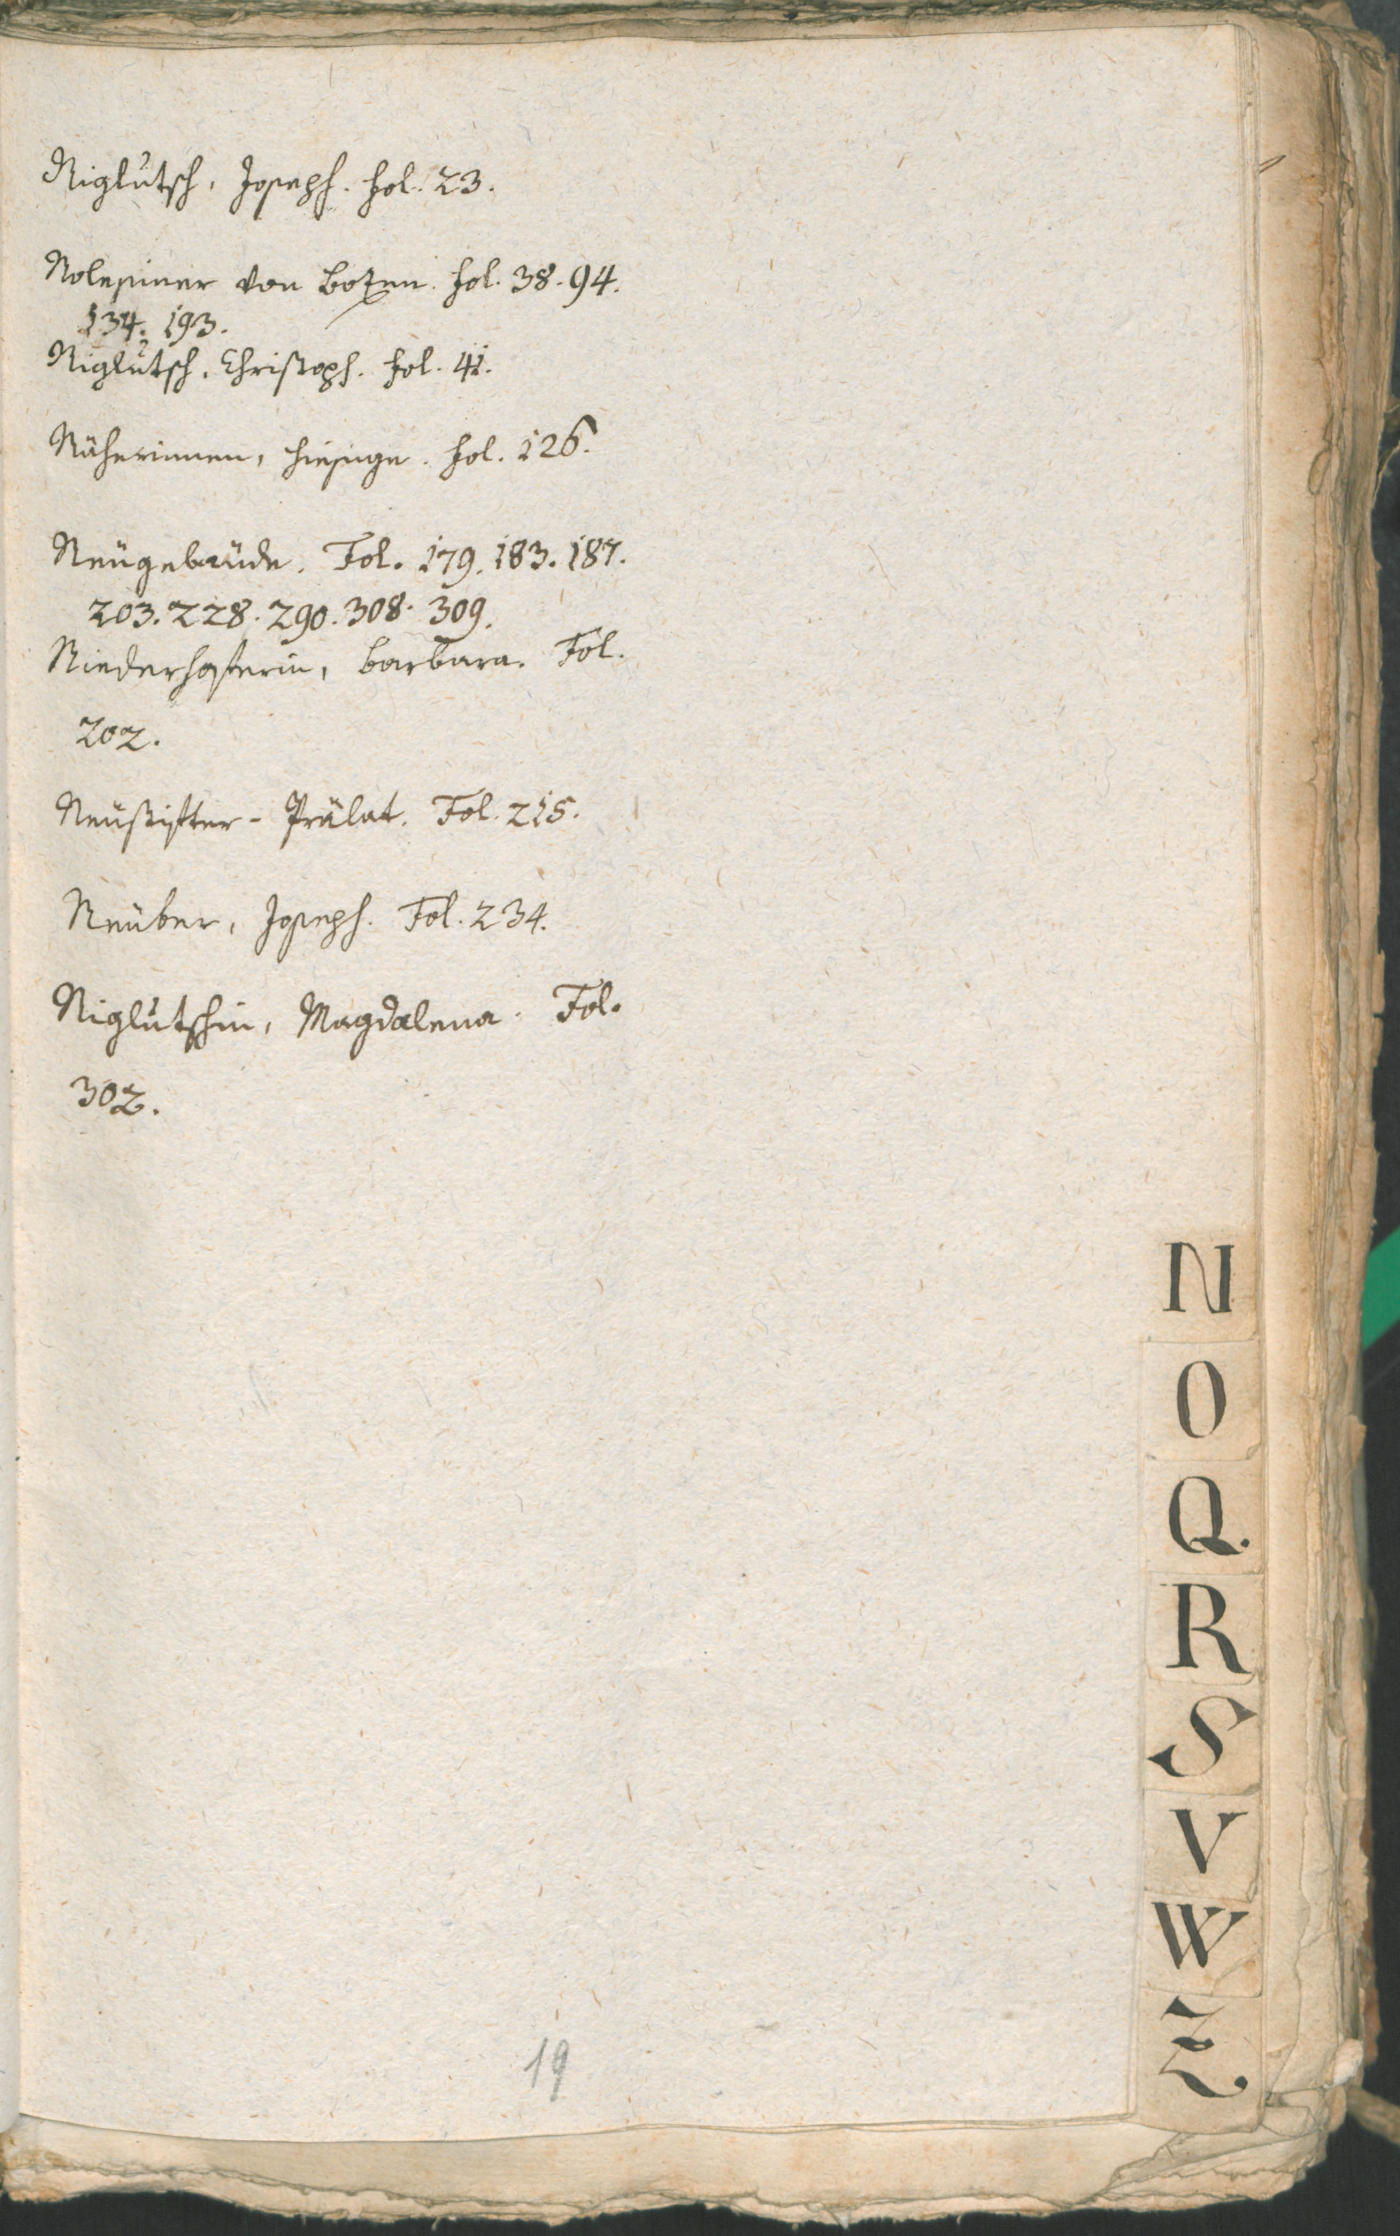 Niglutsch, Joseph. fol. 23.
Nolesiner von Bozen. fol. 38. 94.
134. 193.
Niglutsch, Christoph. fol. 41.
Näherinnen, hiesige. fol. 126.
Neügebäüde. Fol. 179. 183. 187.
203. 228. 290. 308. 309.
Niederhosterin, Barbara. Fol.
202.
Neüstifter-Prälat. Fol. 215.
Neüber, Joseph. Fol. 234.
Niglutschin, Magdalena. Fol.
302.
N
O
Q.
R
S
V
W
Z
19